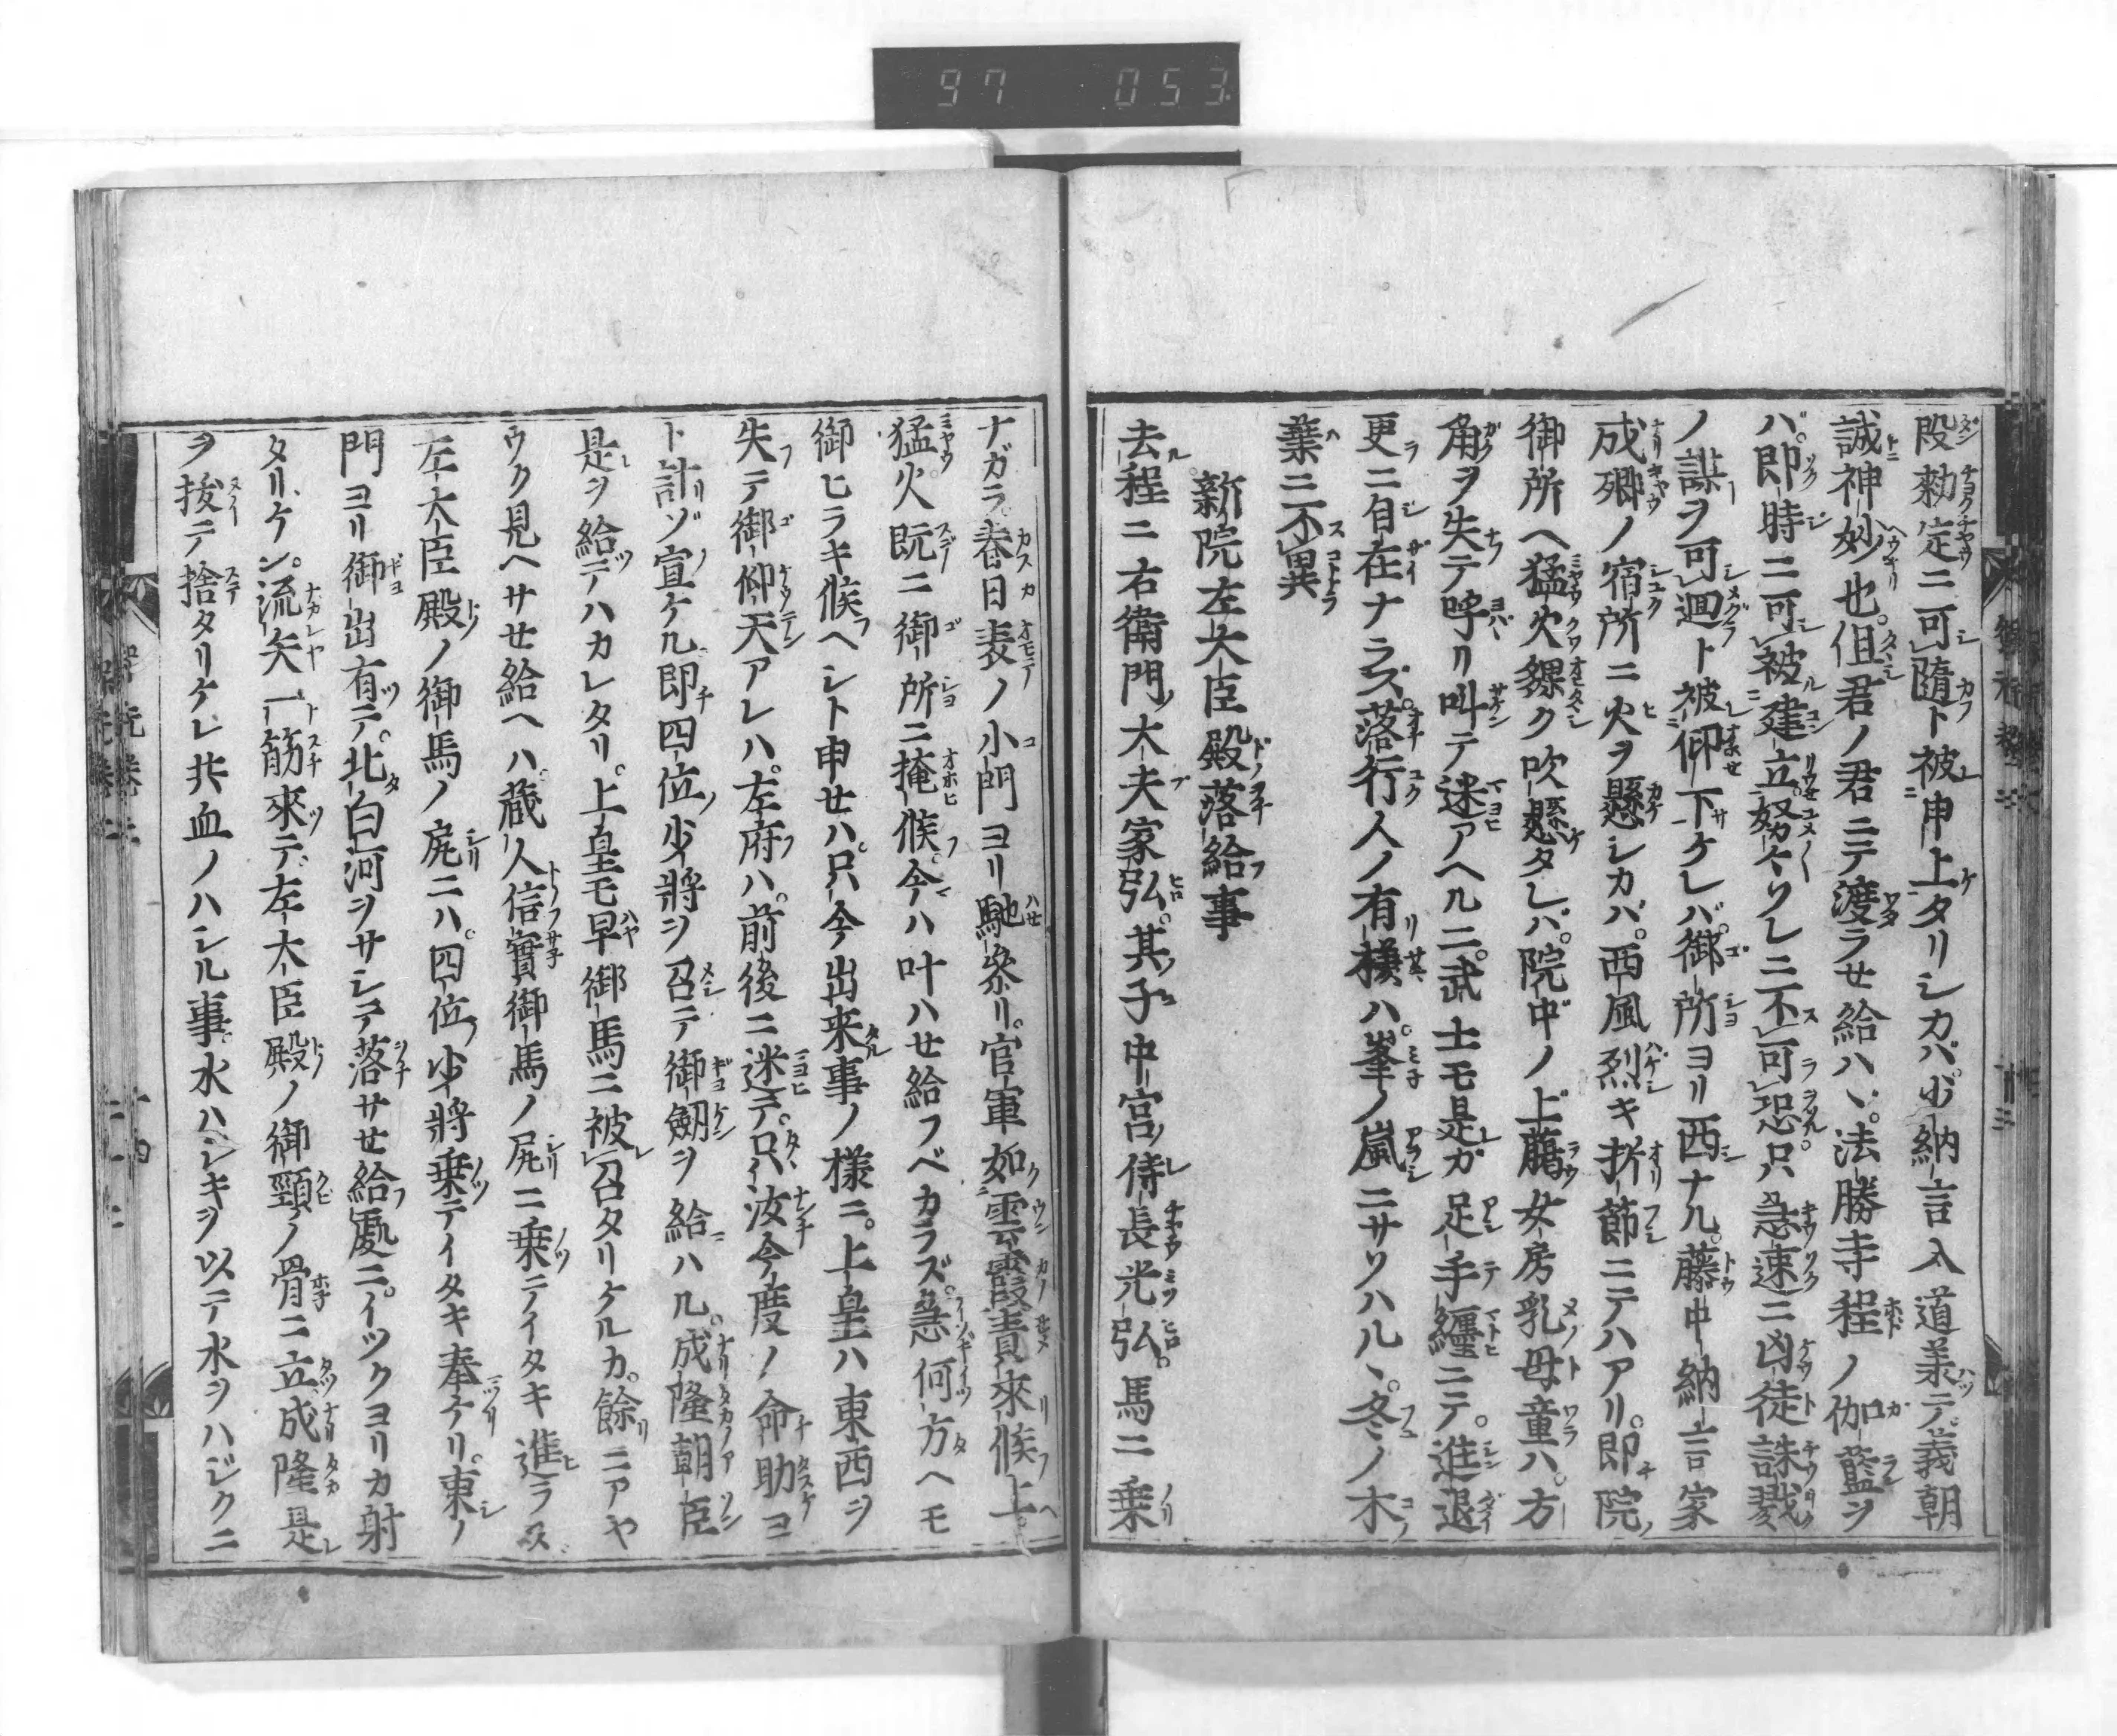 97 053
段勅定ニ可随ト被申上タリシカバ。少納言入道義テ。義朝
誠神妙也。但君ノ君ニテ渡ラせ給ハヽ。法勝寺程ノ伽藍ヲ
バ。即時ニ可被建立。努々ソレニ不可恐。只急速ニ凶徒誅戮
ノ謀ヲ可廻ト被仰下ケレバ。御所ヨリ西ナル。藤中納言家
成卿ノ宿所ニ火ヲ懸シカバ。西風烈キ折節ニテハアリ。即院
御所ヘ猛火夥ク吹懸タレバ。院中ノ上﨟女房乳母童ハ。方
角ヲ失テ呼リ叫テ迷アヘルニ。武士モ是カ足手纏ニテ。進退
更ニ自在ナラズ。落行人ノ有様ハ。峯ノ嵐ニサソハルヽ。冬ノ木
葉ニ不異
新院左大臣殿落給事
去程ニ右衛門大夫家弘。其子中宮侍長光弘。馬ニ乗
ナガラ。春日表ノ小門ヨリ馳參リ。官軍如雲霞責來候上。
猛火既ニ御所ニ掩候。今ハ叶ハせ給フベカラズ。急何方ヘモ
御ヒラキ候ヘシト申せハ。只今出来事ノ様ニ。上皇ハ東西ヲ
失テ御仰天アレハ。左府ハ。前後ニ迷テ。只汝今度ノ命助ヨ
ト計ゾ宣ケル。即四位少將ヲ召テ御劔ヲ給ハル。成隆朝臣
是ヲ給テハカレタリ。上皇モ早御馬ニ被召タリケルカ。餘ニアヤ
ウク見ヘサせ給ヘハ。蔵人信實御馬ノ尻ニ乗テイタキ進ラス。
左大臣殿ノ御馬ノ尻ニハ。四位少將乗テイタキ奉ケリ。東ノ
門ヨリ御出有テ。北白河ヲサシテ落サせ給處ニ。イツクヨリカ射
タリケン。流矢一筋來テ。左大臣殿ノ御頸ノ骨ニ立。成隆是
ヲ抜テ捨タリケレ共。血ノハシル事。水ハシキヲ以テ水ヲハジクニ